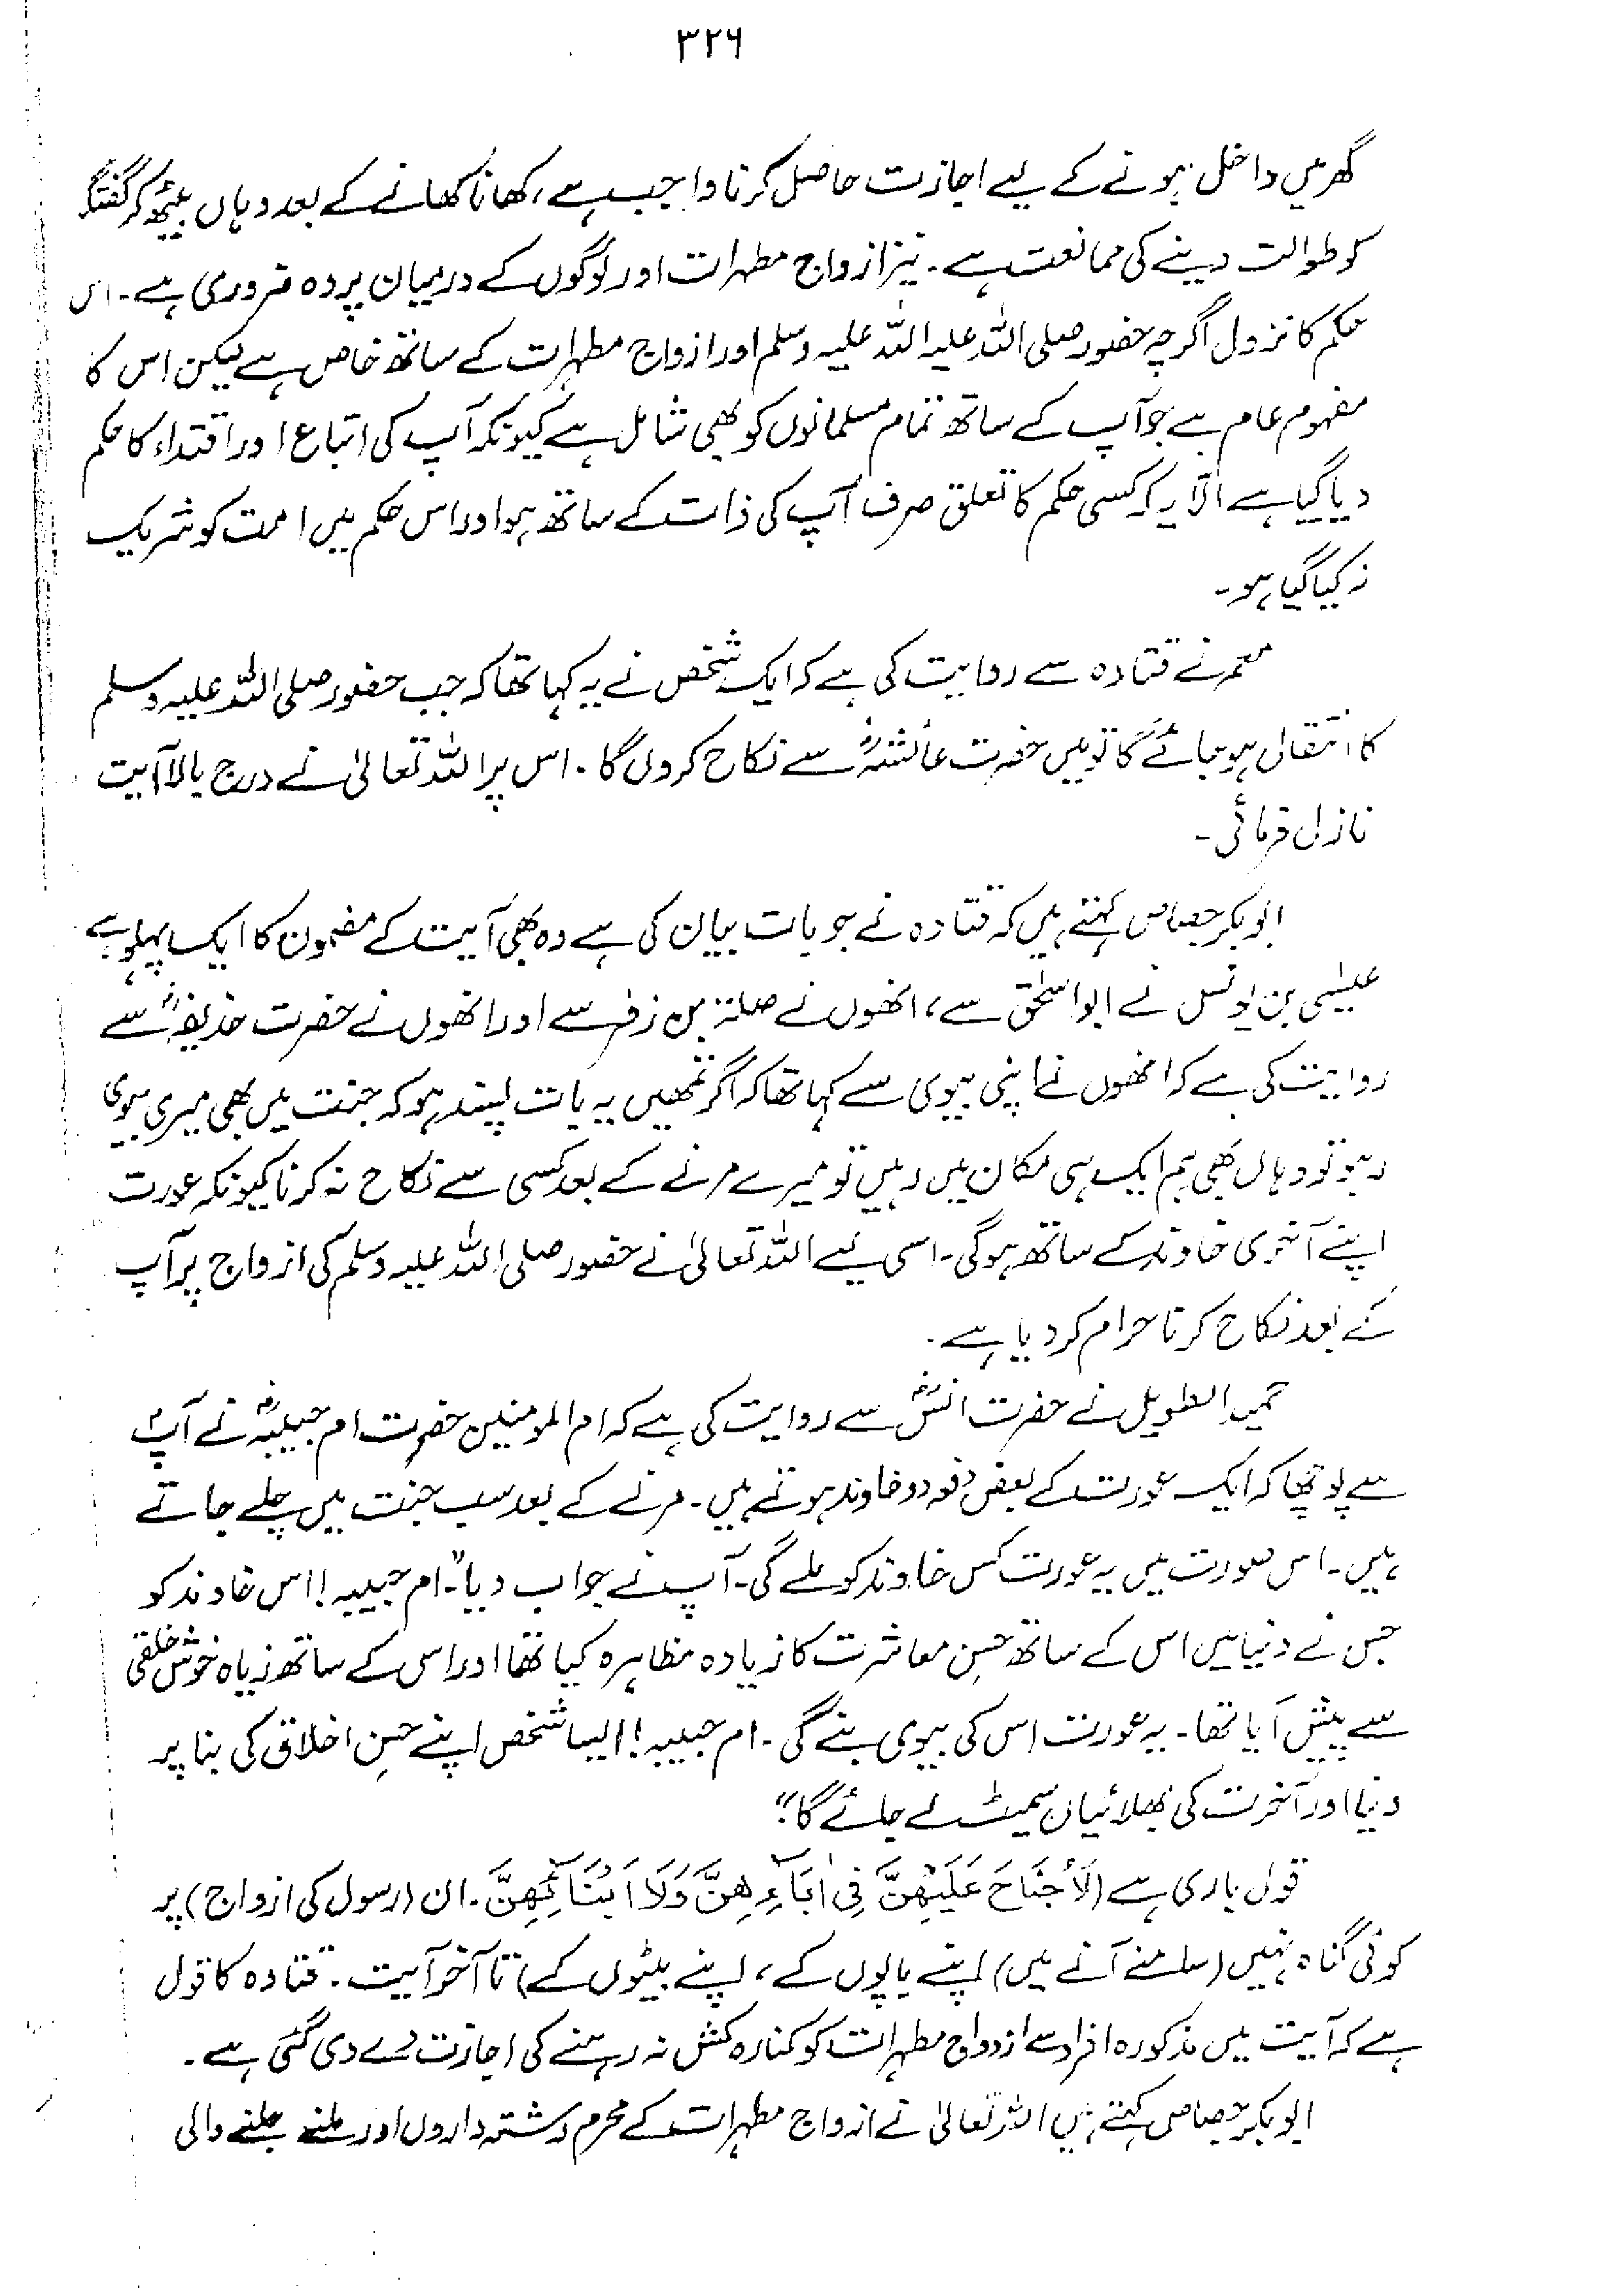 ۳۲۶
گھر میں داخل ہونے کے لیے اجازت حاصل کرنا واجب ہے، کھانا کھانے کے بعد وہاں بیٹھ کر گفتگو
کو طوالت دینے کی ممانعت ہے۔ نیز ازواج مطہرات اور لوگوں کے درمیان پردہ ضروری ہے۔ اس
حکم کا نزول اگرچہ حضور صلی اللہ علیہ اللہ علیہ وسلم اور ازواج مطہرات کے ساتھ خاص ہے لیکن اس کا
مفہوم عام ہے جو آپ کے ساتھ تمام مسلمانوں کو بھی شامل ہے کیونکہ آپ کی اتباع اور اقتداء کا حکم
دیا گیا ہے الّا یہ کہ کسی حکم کا تعلق صرف آپ کی ذات کے ساتھ ہو اور اس حکم میں امت کو شریک
نہ کیا گیا ہو۔
معمر نے قتادہ سے روایت کی ہے کہ ایک شخص نے یہ کہا تھا کہ جب حضور صلی اللہ علیہ وسلم
کا انتقال ہو جائے گا تو میں حضرت عائشہؓ سے نکاح کر لوں گا۔ اس پر اللہ تعالیٰ نے درج بالا آیت
نازل فرمائی۔
ابو بکر جصاص کہتے ہیں کہ قتادہ نے جو بات بیان کی ہے وہ بھی آیت کے مضمون کا ایک پہلو ہے
عیسٰی بن یونس نے ابو اسحٰق سے، انھوں نے صلہ بن زفر سے اور انھوں نے حضرت حذیفہؓ سے
روایت کی ہے کہ انھوں نے اپنی بیوی سے کہا تھا کہ اگر تمھیں یہ بات پسند ہو کہ جنت میں بھی میری بیوی
رہو تو وہاں بھی ہم ایک ہی مکان میں رہیں تو میرے مرنے کے بعد کسی سے نکاح نہ کرنا کیونکہ عورت
اپنے آخری خاوند کے ساتھ ہوگی۔ اسی لیے اللہ تعالیٰ نے حضور صلی اللہ علیہ وسلم کی ازواج پر آپ
کے بعد نکاح کرنا حرام کر دیا ہے۔
حمید الطویل نے حضرت انسؓ سے روایت کی ہے کہ ام المومنین حضرت ام حبیبہؓ نے آپؐ
سے پوچھا کہ ایک عورت کے بعض دفعہ دو خاوند ہوتے ہیں۔ مرنے کے بعد سب جنت میں چلے جاتے
ہیں۔ اس صورت میں یہ عورت کس خاوند کو ملے گی۔ آپ نے جواب دیا"۔ ام حبیبہ! اس خاوند کو
جس نے دنیا میں اس کے ساتھ حسنِ معاشرت کا زیادہ مظاہرہ کیا تھا اور اسی کے ساتھ زیاہ خوش خلقی
سے پیش آیا تھا۔ یہ عورت اس کی بیوی بنے گی۔ ام حبیبہ! ایسا شخص اپنے حسنِ اخلاق کی بنا پر
دنیا اور آخرت کی بھلائیاں سمیٹ لے جائے گا"
قول باری ہے (لَا جُنَاحَ عَلَيْهِنَّ فِىْ اٰبَآءِهِنَّ وَلَا اَبْنَآئِهِنَّ۔ ان (رسول کی ازواج) پر
کوئی گناہ نہیں (سامنے آنے میں) اپنے باپوں کے، اپنے بیٹوں کے) تا آخر آیت۔ قتادہ کا قول
ہے کہ آیت میں مذکورہ افراد سے ازواج مطہرات کو کنارہ کش نہ رہنے کی اجازت دے دی گئی ہے۔
ابو بکر جصاص کہتے ہیں اللہ تعالیٰ نے ازواج مطہرات کے محرم رشتہ داروں اور ملنے جلنے والی